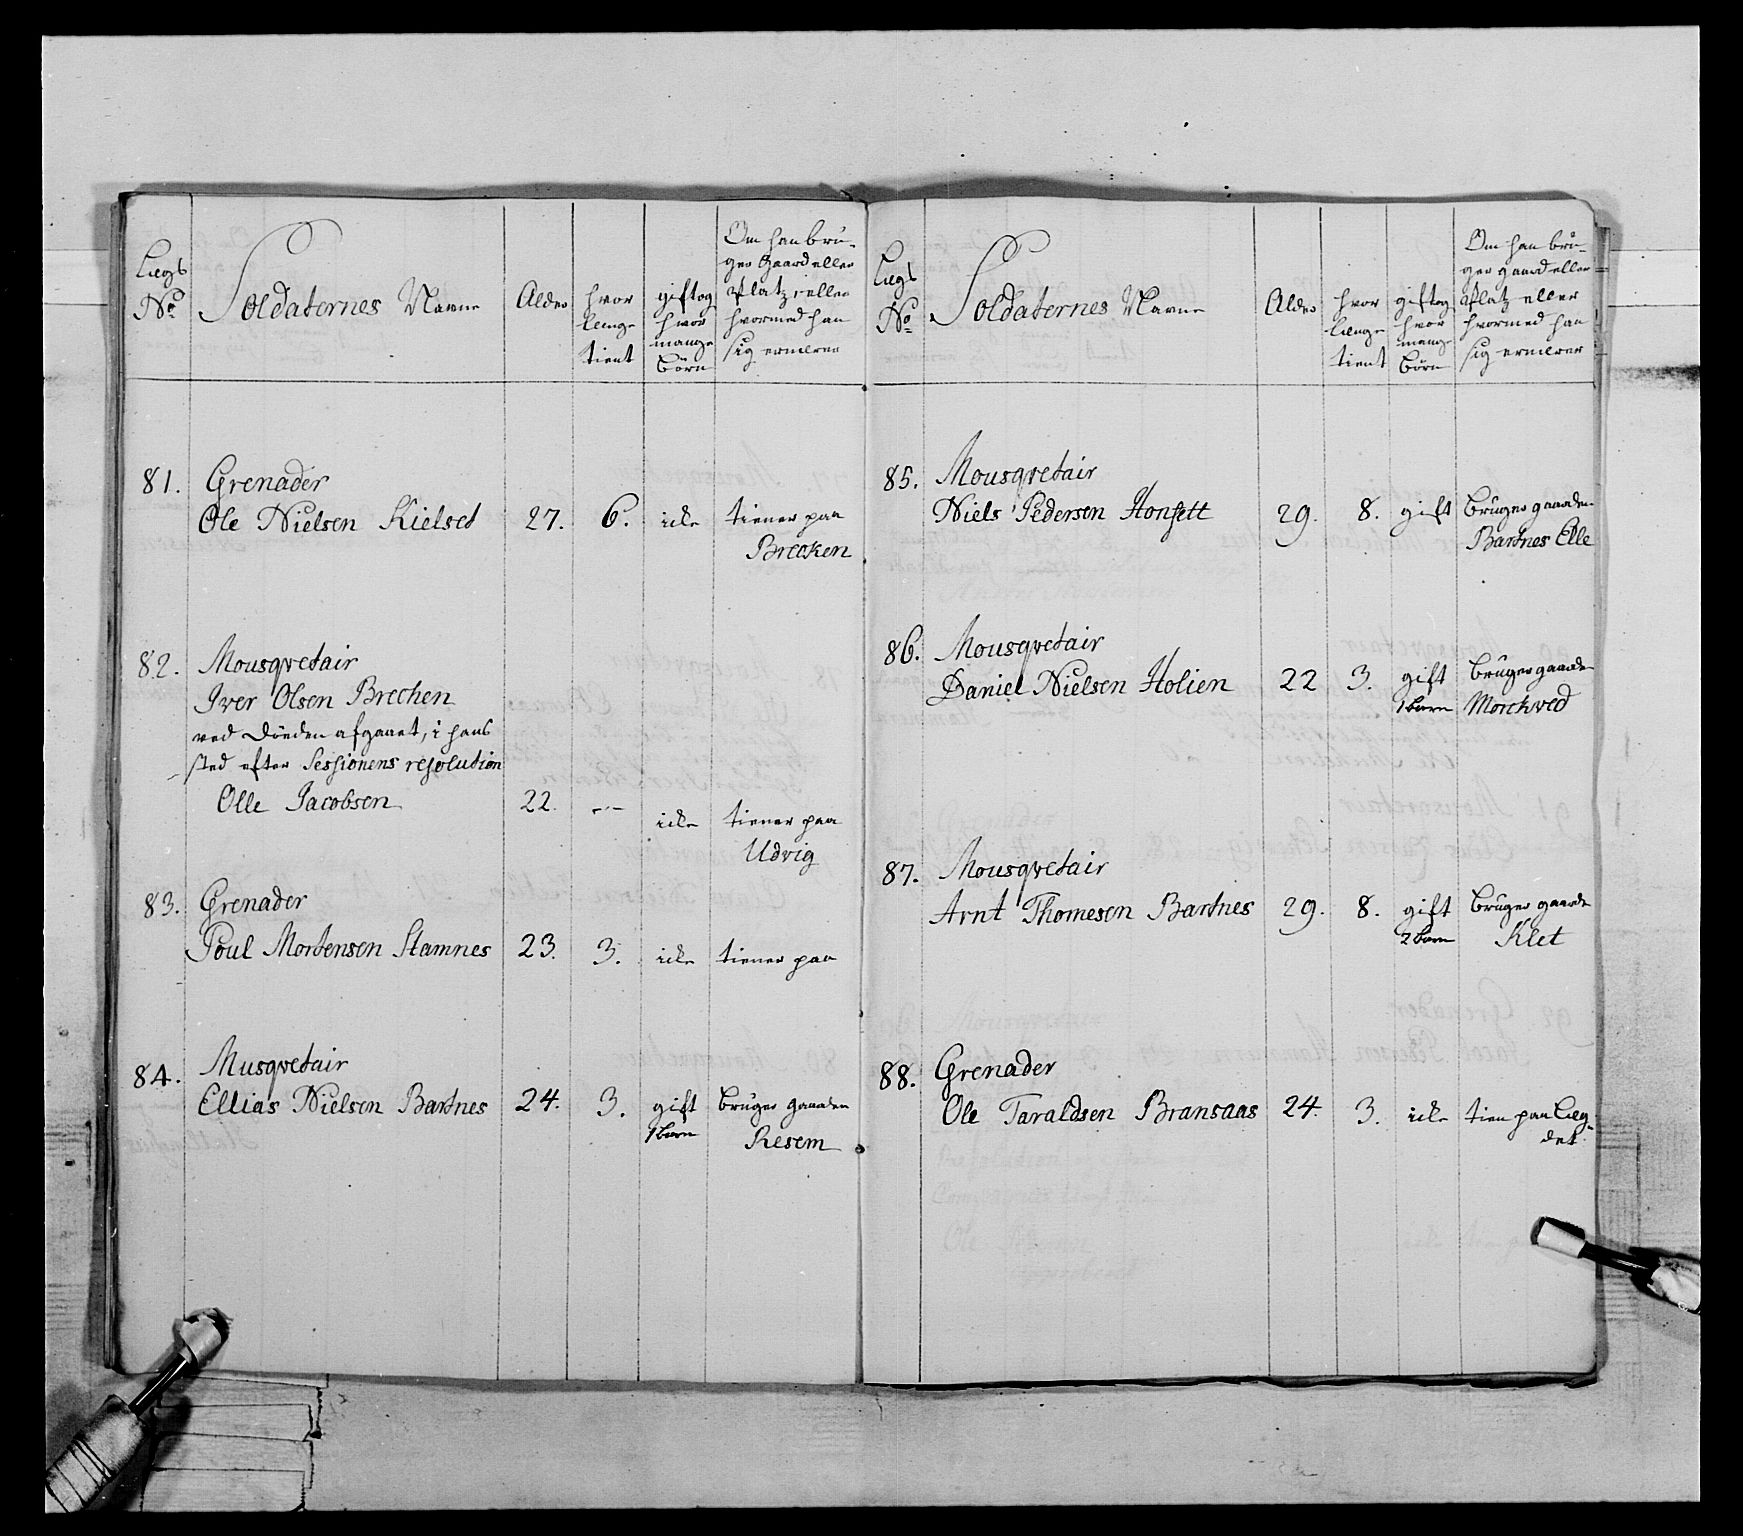 Lægs
No
Soldaternes Navne
Alder
hvor
længe
tient
gift og
hvor
mange
børn
Om han bru-
ger Gaard eller
Platz, eller
hvormed han
sig ernærer
81.
Grenader
Ole Nielsen Kielset 27. 6. icke tiener paa
Brecken
82.
Mousqvetair
Iver Olsen Brechen
ved Döeden afgaaet, i hans
sted efter Sessionens resolution
Olle Jacobsen 22. -- icke tiener paa
Udvig
83.
Grenader
Poul Mortensen Stamnes 23. 3. icke tiener paa
84.
Musqvetair
Ellias Nielsen Bartnes 24. 3. gift bruger gaarden
1 barn Resem
Lægs
No
Soldaternes Navne
Alder
hvor
længe
tient
gift og
hvor
mange
börn
Om han bru-
ger gaard eller
Platz eller
hvormed han
sig ernærer
85.
Mousqvetair
Niels Pedersen Honsett 29. 8. gift bruger gaarden
Bartnes Elle
86.
Mousqvetair
Daniel Nielsen Holien 22 3. gift bruger gaarden
1 barn Morchved
87.
Mousqvetair
Arnt Thomesen Bartnes 29. 8. gift bruger gaarden
2 barn Klet
88.
Grenader
Ole Taraldsen Bransaas 24. 3. icke tien paa Læg-
det